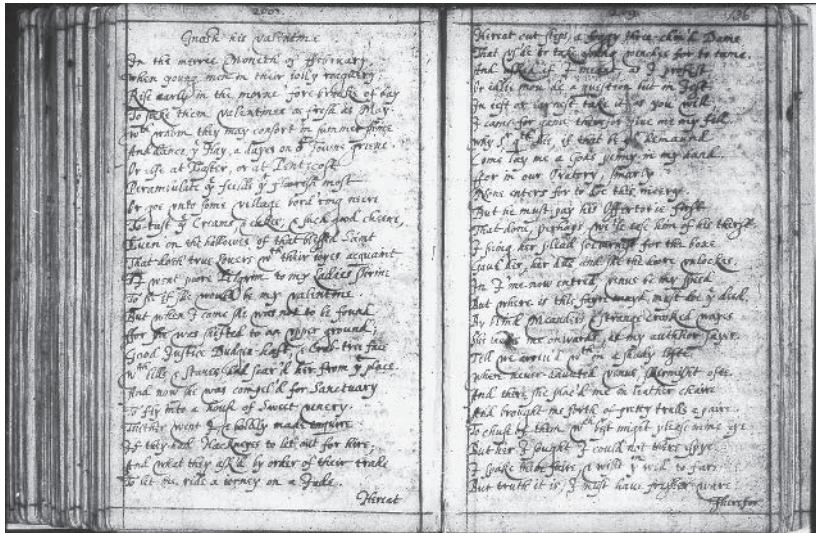 200
Gnash his valentine
In the merrie Moneth of ffebruary
when young men in their iolly roaguery
Rise early in the morne fore breake of day
To seeke them valentines as fresh as May.
wth whom they may consort in summer
And dance yͤ Hay, a dayes on yͤ Towne greene
Or else at Easter, or at Penticost
Perambulate yͤ feilds yͭ flourish most
Or goe vnto some village bord'ring neere
To tast yͤ Creame, & cakes, & such good cheere,
Euen on the hallowes of that blessed Saint
That doth true louers wth their ioyes acquaint
I went poore Pilgrim to my Ladies shrine
To se if she would be my valentine
But when I come she was not to be found
ffor she was shifted to an vpper ground;
Good Justice Dudge-haft, & Crab-tree face
wth bills & staues had scar'd her from yͤ place.
And now she was compel'd for Sanctuary
To fly into a house of Sweet venery.
Thither went I, & boldly made enquire
If they had Hackneyes to let out for hire,
And what they ask'd by order of their trade
To let one ride a iorney on a Jade.
Hereat
106
Hereat out steps, a foggy three-chin'd Dame
That vs'd to take young wenches for to tame.
And ask'd if I meant as I profest
Or onely a question but in Jest
In iest or earnest take it as you will,
I came for game therefor giue me my fill.
why Sr qth shee, if that be yr demaund
Come lay me a Gods penny in my hand
ffor in our Oratory, smartly
None enters for to doe this
But he must pay his Offertorie first
That done, perhaps we'ele ease him of his thirst.
I seing her plead so earnest for the boxe
Gaue her, her and she the dore vnlockes.
In I'me now entred, venus be my speed
But where is this fayre must doe yͤ deed.
By blind Meanders, & strange crooked wayes
She leades me onwards, as my author sayes.
Till we arriu'd wthin a shady loft
where venus skirmisht oft.
And there she plac'd me in leather chaire
And brought me forth of pretty trulls a paire.
To chuse of them wch best might please mine eye
But her I sought I could not there espye.
I spake them faire, & wisht yͫ well to fare
But truth it is, I must haue fresher ware.
Therefor